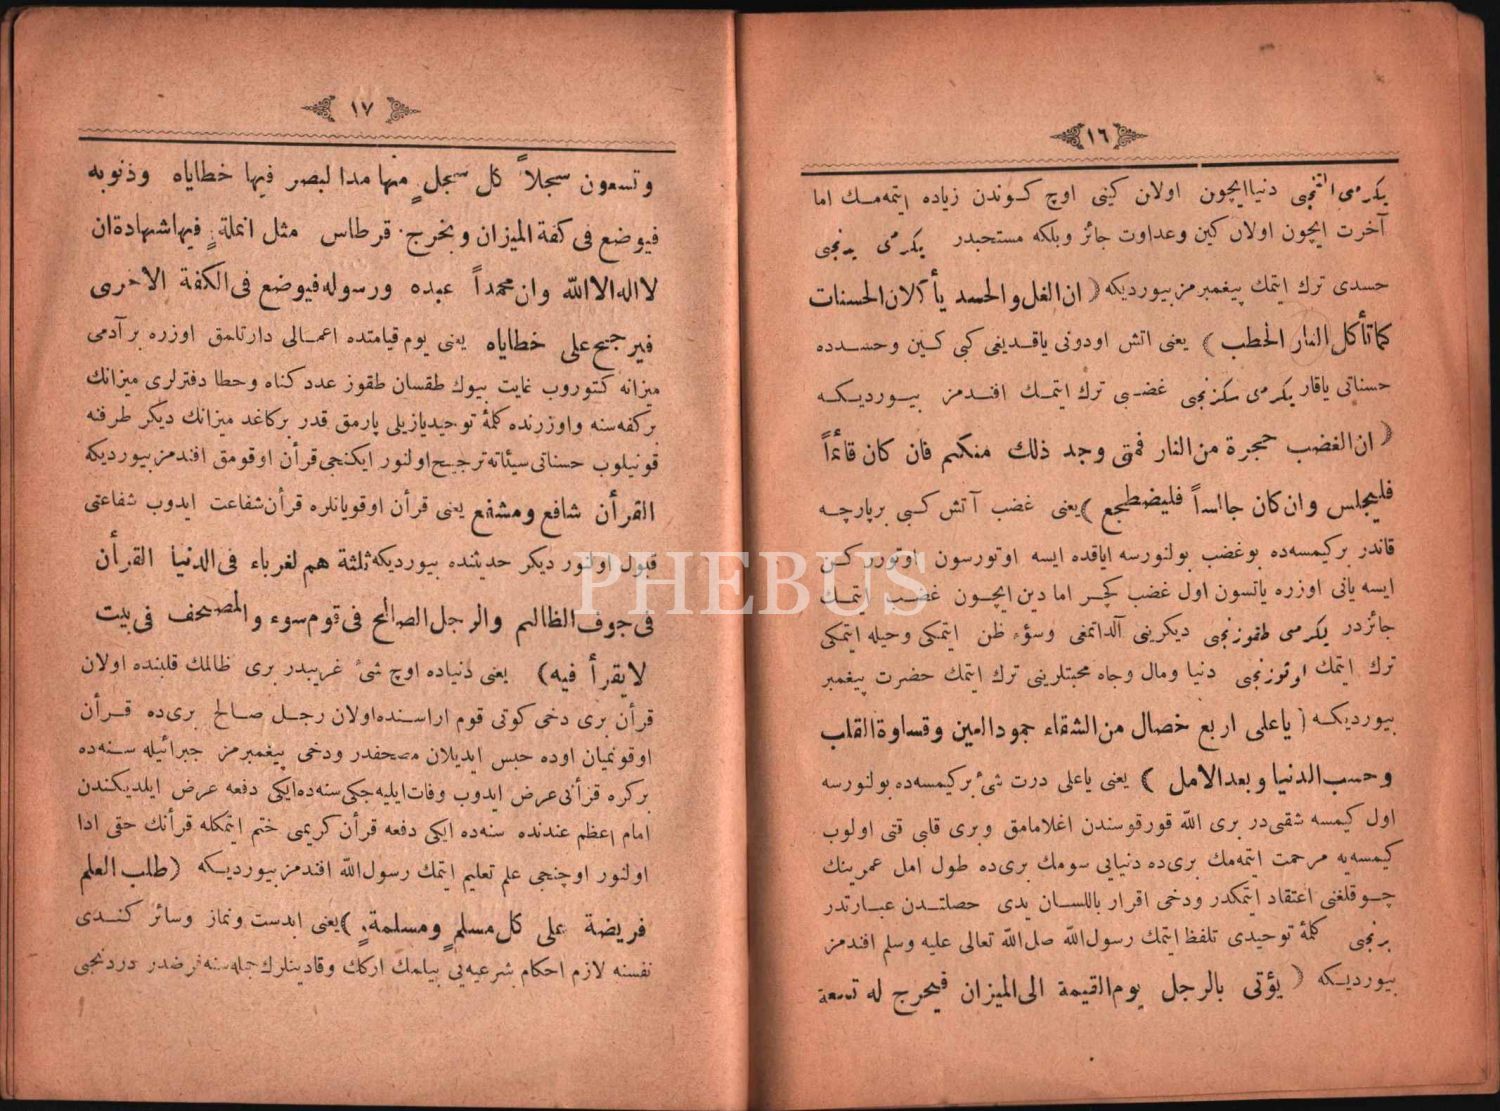 ١٦
يكرمى التنجى دنيا ايچون اولان كينى اوچ كوندن زياده ايتمه‌مك اما
آخرت ايچون اولان كين وعداوت جائز وبلكه مستحبدر يكرمى يدنجى
حسدى ترك ايتمك پيغمبرمز بيورديكه (ان الغل والحسد يأكلان الحسنات
كما تأكل النار الحطب) يعنى اتش اودونى ياقديغى كبى كين وحسدده
حسناتى ياقار يكرمى سكزنجى غضبى ترك ايتمك افندمز بيورديكه
(ان الغضب جمرة من النار فمتى وجد ذلك منكم فان كان قائماً
فليجلس وان كان جالساً فليضطجع) يعنى غضب آتش كبى برپارچه
قاندر بركيمسه‌ده بوغضب بولنورسه اياقده ايسه اوتورسون اوتوررکن
ايسه يانى اوزره ياتسون اول غضب كچر اما دين ايچون غضب ايتمك
جائزدر يكرمى طقوزنجى ديكرينى آلداتمغى وسؤ ظن ايتمكى وحيله ايتمكى
ترك ايتمك اوتوزنجى دنيا ومال وجاه محبتلرينى ترك ايتمك حضرت پيغمبر
بيورديكه (ياعلى اربع خصال من الشقاء جمود العين وقساوة القلب
وحسب الدنيا وبعد الامل) يعنى ياعلى درت شئ بركيمسه‌ده بولنورسه
اول كيمسه شقى‌در برى الله قورقوسندن اغلامامق وبرى قلبى قتى اولوب
كيمسه‌يه مرحمت ايتمه‌مك برى‌ده دنيايى سومك برى‌ده طول امل عمرينك
چوقلغنى اعتقاد ايتمكدر ودخى اقرار باللسان يدى خصلتدن عبارتدر
برنجى كلمهٔ توحيدى تلفظ ايتمك رسول‌الله صل‌الله تعالى عليه وسلم افندمز
بيورديكه (يؤتى بالرجل يوم القيمة الى الميزان فيخرج له تسعة
١٧
وتسعون سجلاً كل سجل منها مدا لبصر فيها خطاياه وذنوبه
فيوضع فى كفة الميزان ويخرج قرطاس مثل انملة فيها شهادة ان
لااله الاالله وان محمداً عبده ورسوله فيوضع فى الكفة الاخرى
فيرجح على خطاياه يعنى يوم قيامتده اعمالى دارتلمق اوزره برآدمى
ميزانه كتوروب غايت بيوك طقسان طقوز عدد كناه وخطا دفترلرى ميزانك
بركفه‌سنه واوزرنده كلمهٔ توحيد يازيلى پارمق قدر بركاغد ميزانك ديكر طرفنه
قونيلوب حسناتى سيئاته ترجيح اولنور ايكنجى قرأن اوقومق افندمز بيورديكه
القرأن شافع ومشفع يعنى قرأن اوقويانلره قرأن شفاعت ايدوب شفاعتى
قبول اولنور ديكر حديثنده بيورديكه ثلثة هم لغرباء فى الدنيا القرأن
فى جوف الظالم والرجل الصالح فى قوم سوء والمصحف فى بيت
لايقرأ فيه) يعنى دنياده اوچ شئ غريبدر برى ظالمك قلبنده اولان
قرأن برى دخى كوتى قوم اراسنده اولان رجل صالح برى‌ده قرأن
اوقونميان اوده حبس ايديلان مصحفدر ودخى پيغمبرمز جبرائيله سنه‌ده
بركره قرأنى عرض ايدوب وفات ايليه‌جكى سنه‌ده ايكى دفعه عرض ايلديكندن
امام اعظم عندنده سنه‌ده ايكى دفعه قرأن كريمى ختم ايتمكله قرأنك حقى ادا
اولنور اوچنجى علم تعليم ايتمك رسول‌الله افندمز بيورديكه (طلب العلم
فريضة على كل مسلم ومسلمة) يعنى ابدست ونماز وسائر كندى
نفسنه لازم احكام شرعيه‌يى بيلمك اركك وقادينلرك جمله‌سنه فرضدر دردنجى
PHEBUS